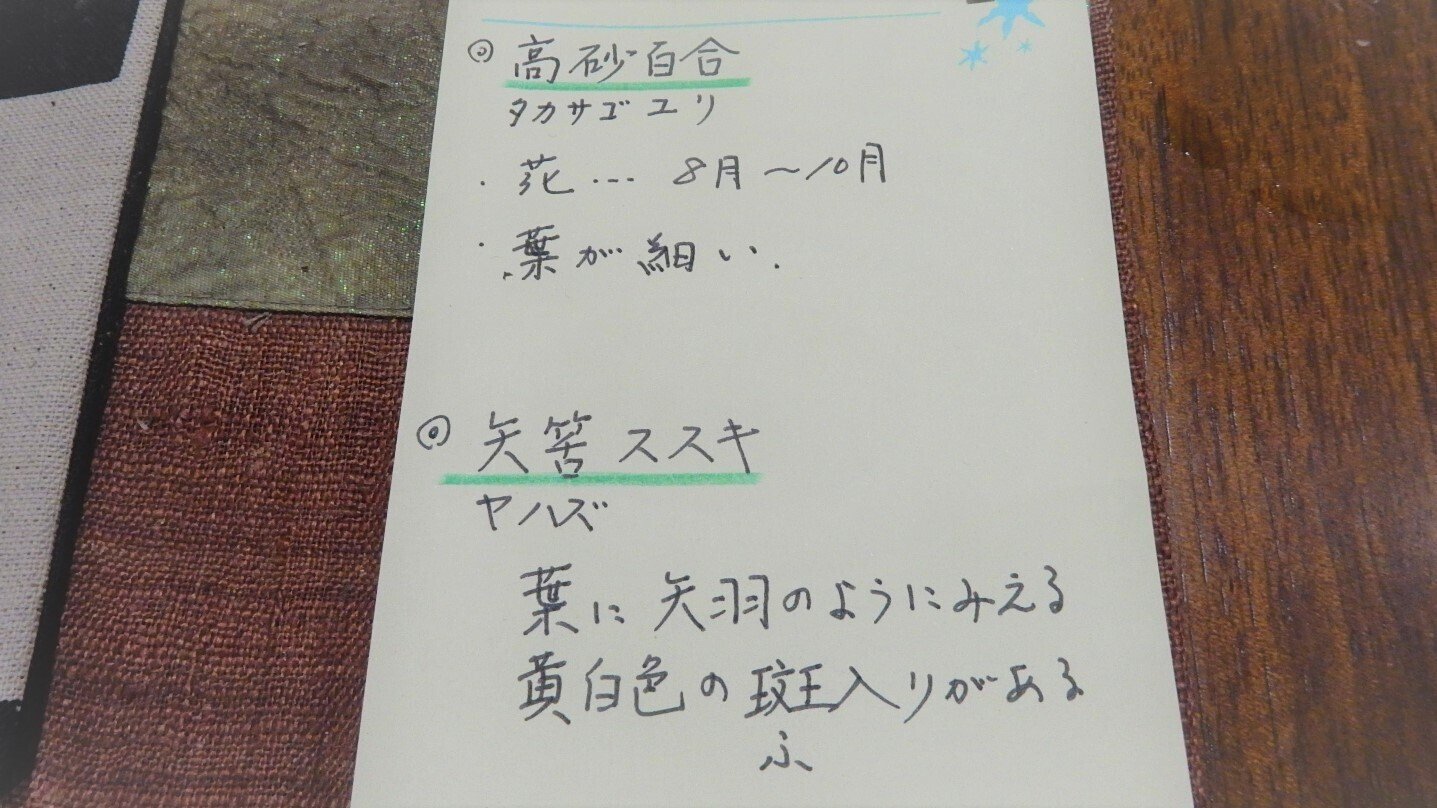 ◎ 高砂百合
タカサゴユリ
・花… 8月〜10月
・葉が細い.
◎ 矢筈ススキ
ヤハズ
葉に矢羽のようにみえる
黄白色の斑入りがある
ふ